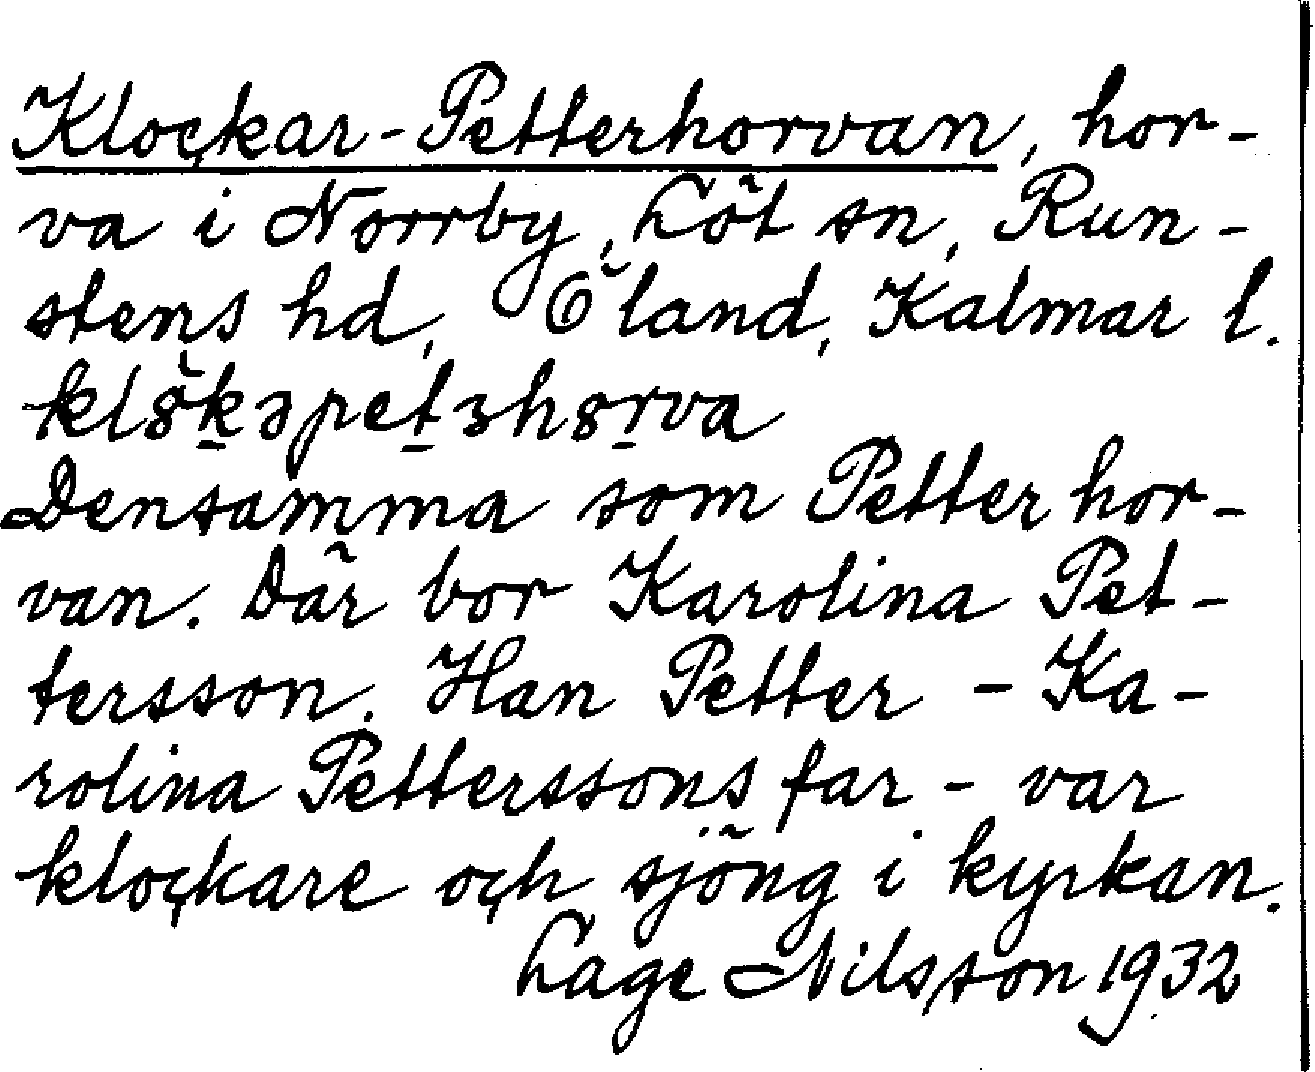 Klockar-Petterhorvan, hor-
va i Norrby, Löt sn, Run-
stens hd, Öland, Kalmar l.
Densamma som Petterhor-
van. Där bor Karolina Pet-
tersson. Han Petter - Ka-
rolina Petterssons far - var
klockare och sjöng i kyrkan.
Lage Nilsson 1932